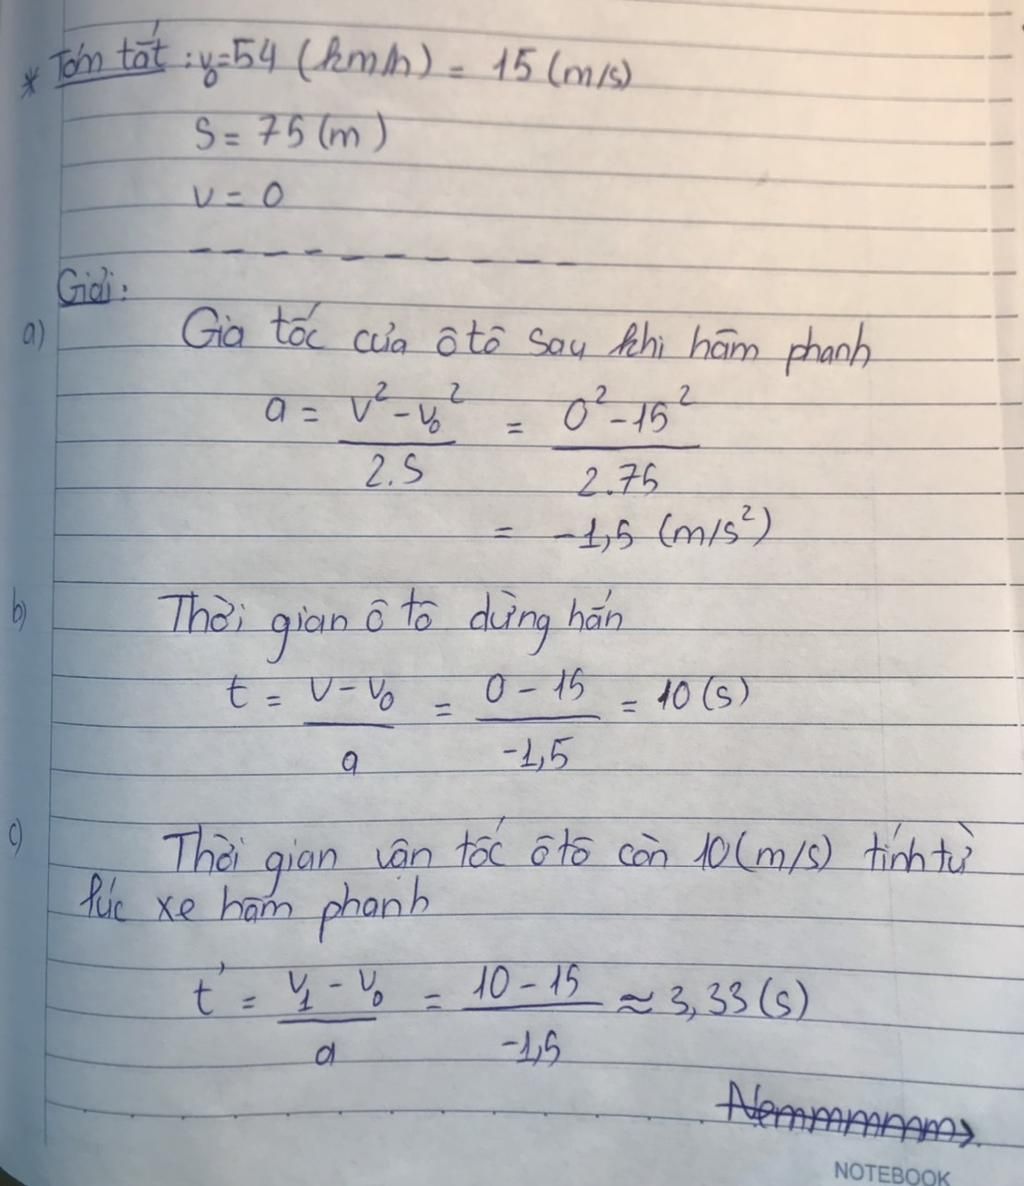 * Tóm tắt : v₀=54 (km/h) = 15 (m/s)
S = 75 (m)
v = 0
Giải:
a) Gia tốc của ô tô sau khi hãm phanh
a = (v² - v₀²)/(2.S) = (0² - 15²)/(2.75)
= -1,5 (m/s²)
b) Thời gian ô tô dừng hẳn
t = (v - v₀)/a = (0 - 15)/(-1,5) = 10 (s)
c) Thời gian vận tốc ô tô còn 10 (m/s) tính từ
lúc xe hãm phanh
t' = (v₁ - v₀)/a = (10 - 15)/(-1,5) ≈ 3,33 (s)
NOTEBOOK